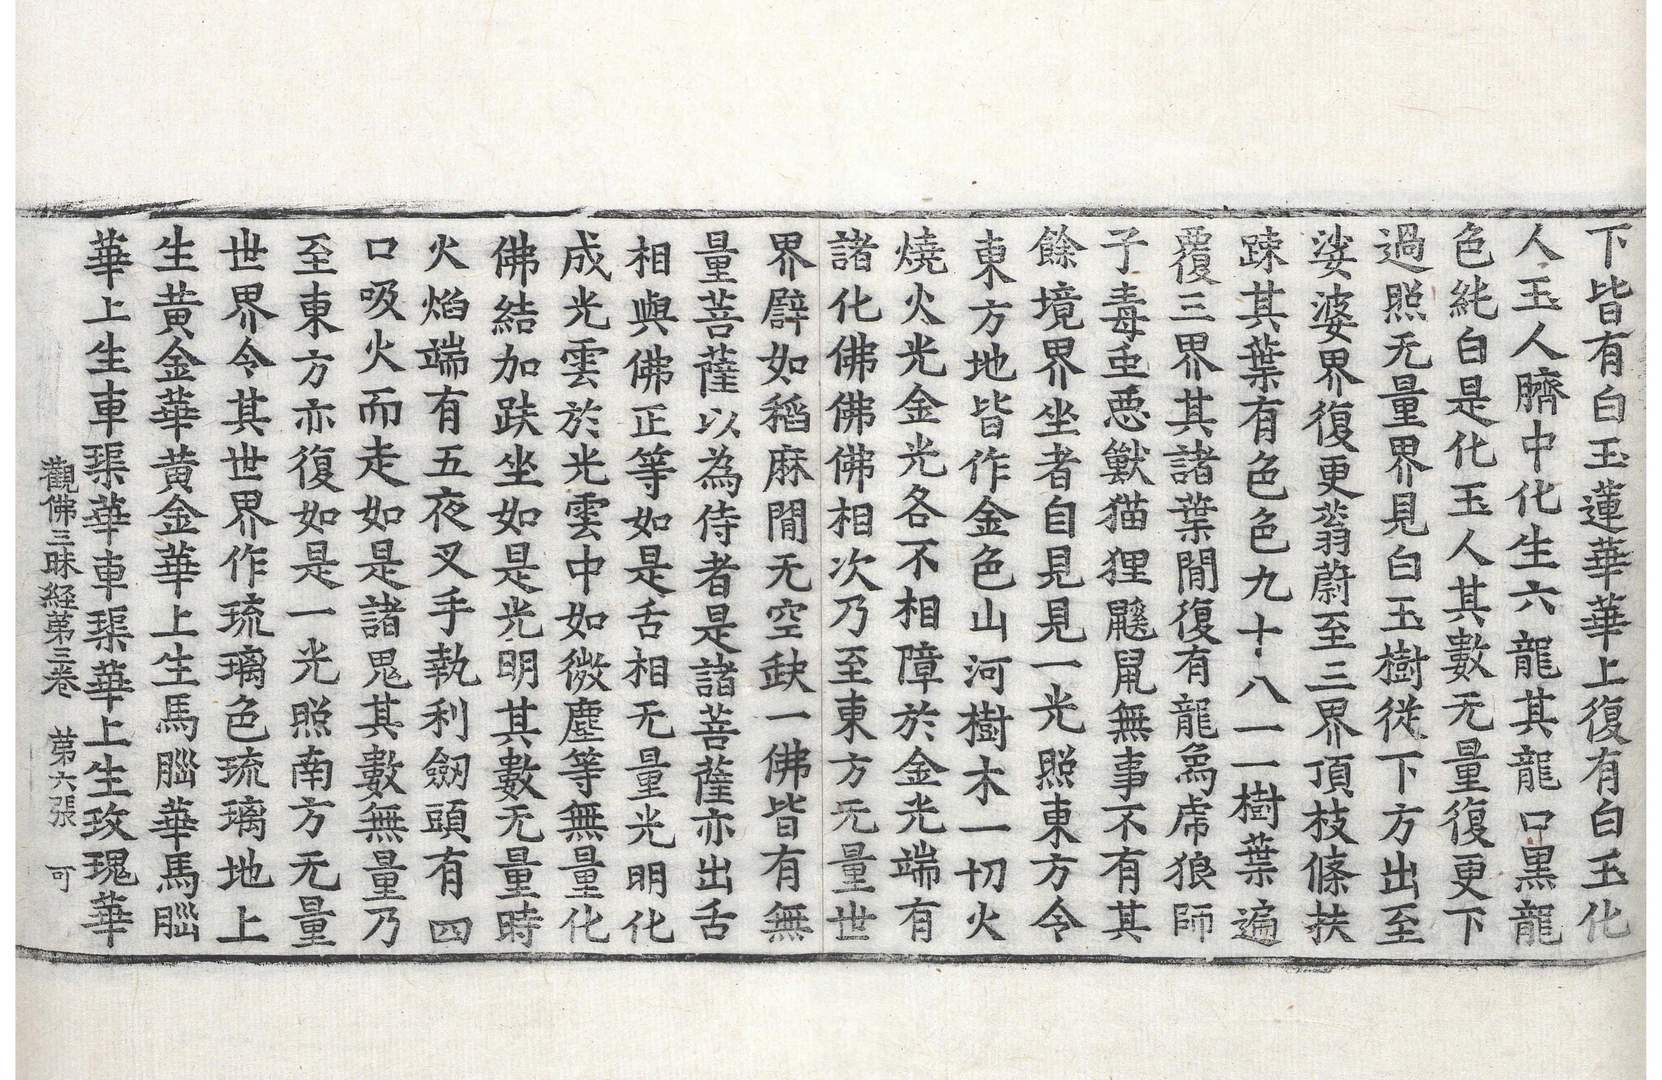 下皆有白玉蓮華華上復有白玉化
人玉人臍中化生六龍其龍口黑龍
色純白是化玉人其數无量復更下
過照无量界見白玉樹從下方出至
娑婆界復更蓊蔚至三界頂枝條扶
踈其葉有色色九十八一一樹葉遍
覆三界其諸葉間復有龍象虎狼師
子毒虫惡獸猫狸鼷鼠無事不有其
餘境界坐者自見見一光照東方令
東方地皆作金色山河樹木一切火
燒火光金光各不相障於金光端有
諸化佛佛佛相次乃至東方无量世
界譬如稻麻間无空缺一佛皆有無
量菩薩以為侍者是諸菩薩亦出舌
相與佛正等如是舌相无量光明化
成光雲於光雲中如微塵等無量化
佛結加趺坐如是光明其數无量時
火焰端有五夜叉手執利劒頭有四
口吸火而走如是諸鬼其數無量乃
至東方亦復如是一光照南方无量
世界令其世界作琉璃色琉璃地上
生黃金華黃金華上生馬腦華馬腦
華上生車璖華車璖華上生玫瑰華
觀佛三昧經第三卷 第六張 可